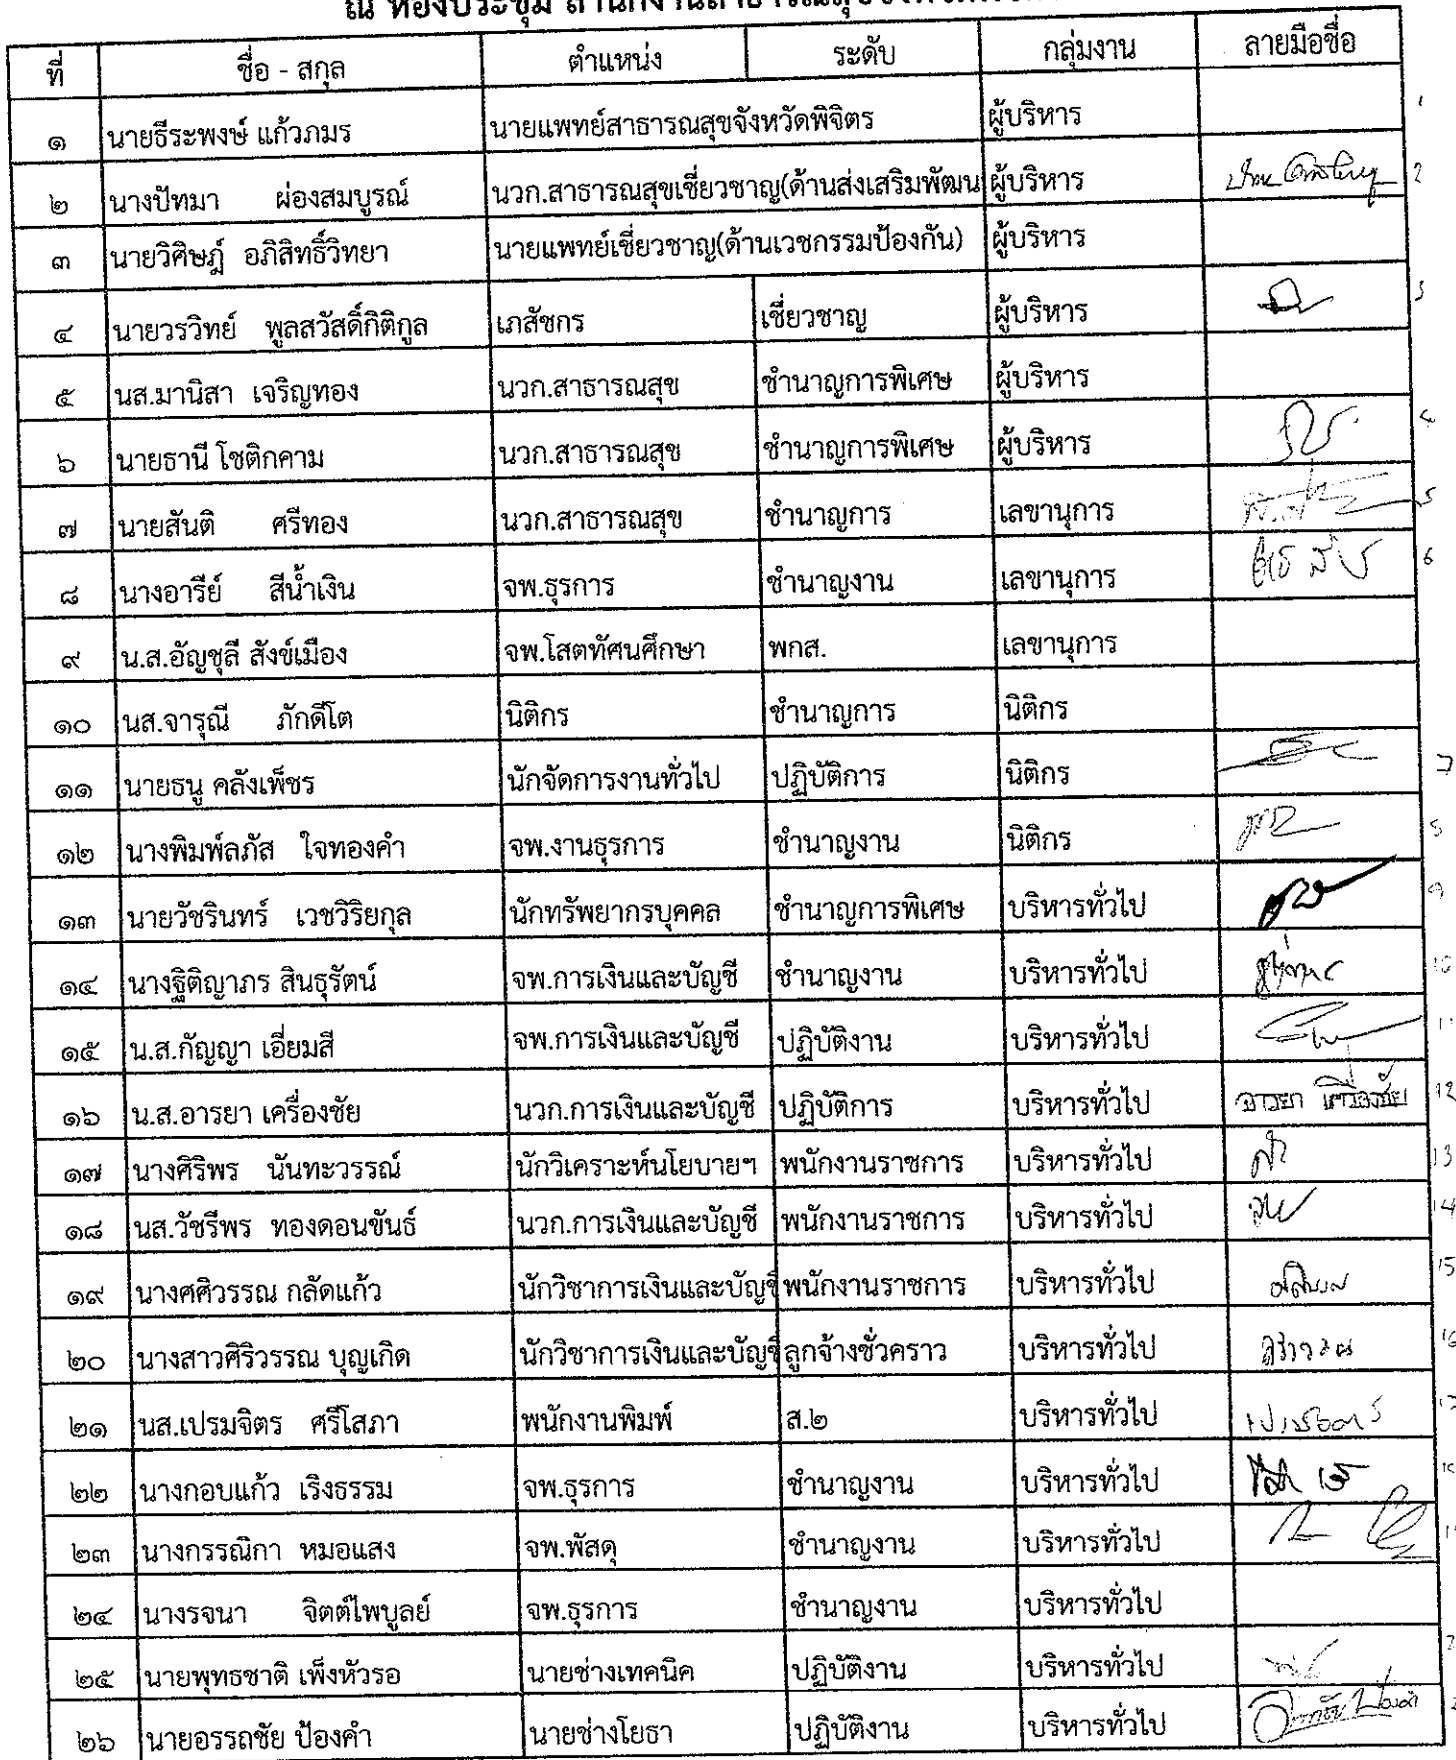 ณ ห้องประชุม สำนักงานสาธารณสุขจังหวัด
ที่ ชื่อ - สกุล ตำแหน่ง ระดับ กลุ่มงาน ลายมือชื่อ
๑ นายธีระพงษ์ แก้วภมร นายแพทย์สาธารณสุขจังหวัดพิจิตร ผู้บริหาร 1
๒ นางปัทมา ผ่องสมบูรณ์ นวก.สาธารณสุขเชี่ยวชาญ(ด้านส่งเสริมพัฒน ผู้บริหาร 2
๓ นายวิศิษฎ์ อภิสิทธิ์วิทยา นายแพทย์เชี่ยวชาญ(ด้านเวชกรรมป้องกัน) ผู้บริหาร
๔ นายวรวิทย์ พูลสวัสดิ์กิติกูล เภสัชกร เชี่ยวชาญ ผู้บริหาร 3
๕ นส.มานิสา เจริญทอง นวก.สาธารณสุข ชำนาญการพิเศษ ผู้บริหาร
๖ นายธานี โชติกคาม นวก.สาธารณสุข ชำนาญการพิเศษ ผู้บริหาร
๗ นายสันติ ศรีทอง นวก.สาธารณสุข ชำนาญการ เลขานุการ 5
๘ นางอารีย์ สีน้ำเงิน จพ.ธุรการ ชำนาญงาน เลขานุการ 6
๙ น.ส.อัญชุลี สังข์เมือง จพ.โสตทัศนศึกษา พกส. เลขานุการ
๑๐ นส.จารุณี ภักดีโต นิติกร ชำนาญการ นิติกร
๑๑ นายธนู คลังเพ็ชร นักจัดการงานทั่วไป ปฏิบัติการ นิติกร 7
๑๒ นางพิมพ์ลภัส ใจทองคำ จพ.งานธุรการ ชำนาญงาน นิติกร
๑๓ นายวัชรินทร์ เวชวิริยกุล นักทรัพยากรบุคคล ชำนาญการพิเศษ บริหารทั่วไป 9
๑๔ นางฐิติญาภร สินธุรัตน์ จพ.การเงินและบัญชี ชำนาญงาน บริหารทั่วไป 10
๑๕ น.ส.กัญญา เอี่ยมสี จพ.การเงินและบัญชี ปฏิบัติงาน บริหารทั่วไป 11
๑๖ น.ส.อารยา เครื่องชัย นวก.การเงินและบัญชี ปฏิบัติการ บริหารทั่วไป อารยา เครื่องชัย 12
๑๗ นางศิริพร นันทะวรรณ์ นักวิเคราะห์นโยบายฯ พนักงานราชการ บริหารทั่วไป 13
๑๘ นส.วัชรีพร ทองดอนขันธ์ นวก.การเงินและบัญชี พนักงานราชการ บริหารทั่วไป 14
๑๙ นางศศิวรรณ กลัดแก้ว นักวิชาการเงินและบัญชี พนักงานราชการ บริหารทั่วไป 15
๒๐ นางสาวศิริวรรณ บุญเกิด นักวิชาการเงินและบัญชี ลูกจ้างชั่วคราว บริหารทั่วไป 16
๒๑ นส.เปรมจิตร ศรีโสภา พนักงานพิมพ์ ส.๒ บริหารทั่วไป
๒๒ นางกอบแก้ว เริงธรรม จพ.ธุรการ ชำนาญงาน บริหารทั่วไป
๒๓ นางกรรณิกา หมอแสง จพ.พัสดุ ชำนาญงาน บริหารทั่วไป
๒๔ นางรจนา จิตต์ไพบูลย์ จพ.ธุรการ ชำนาญงาน บริหารทั่วไป
๒๕ นายพุทธชาติ เพ็งหัวรอ นายช่างเทคนิค ปฏิบัติงาน บริหารทั่วไป
๒๖ นายอรรถชัย ป้องคำ นายช่างโยธา ปฏิบัติงาน บริหารทั่วไป